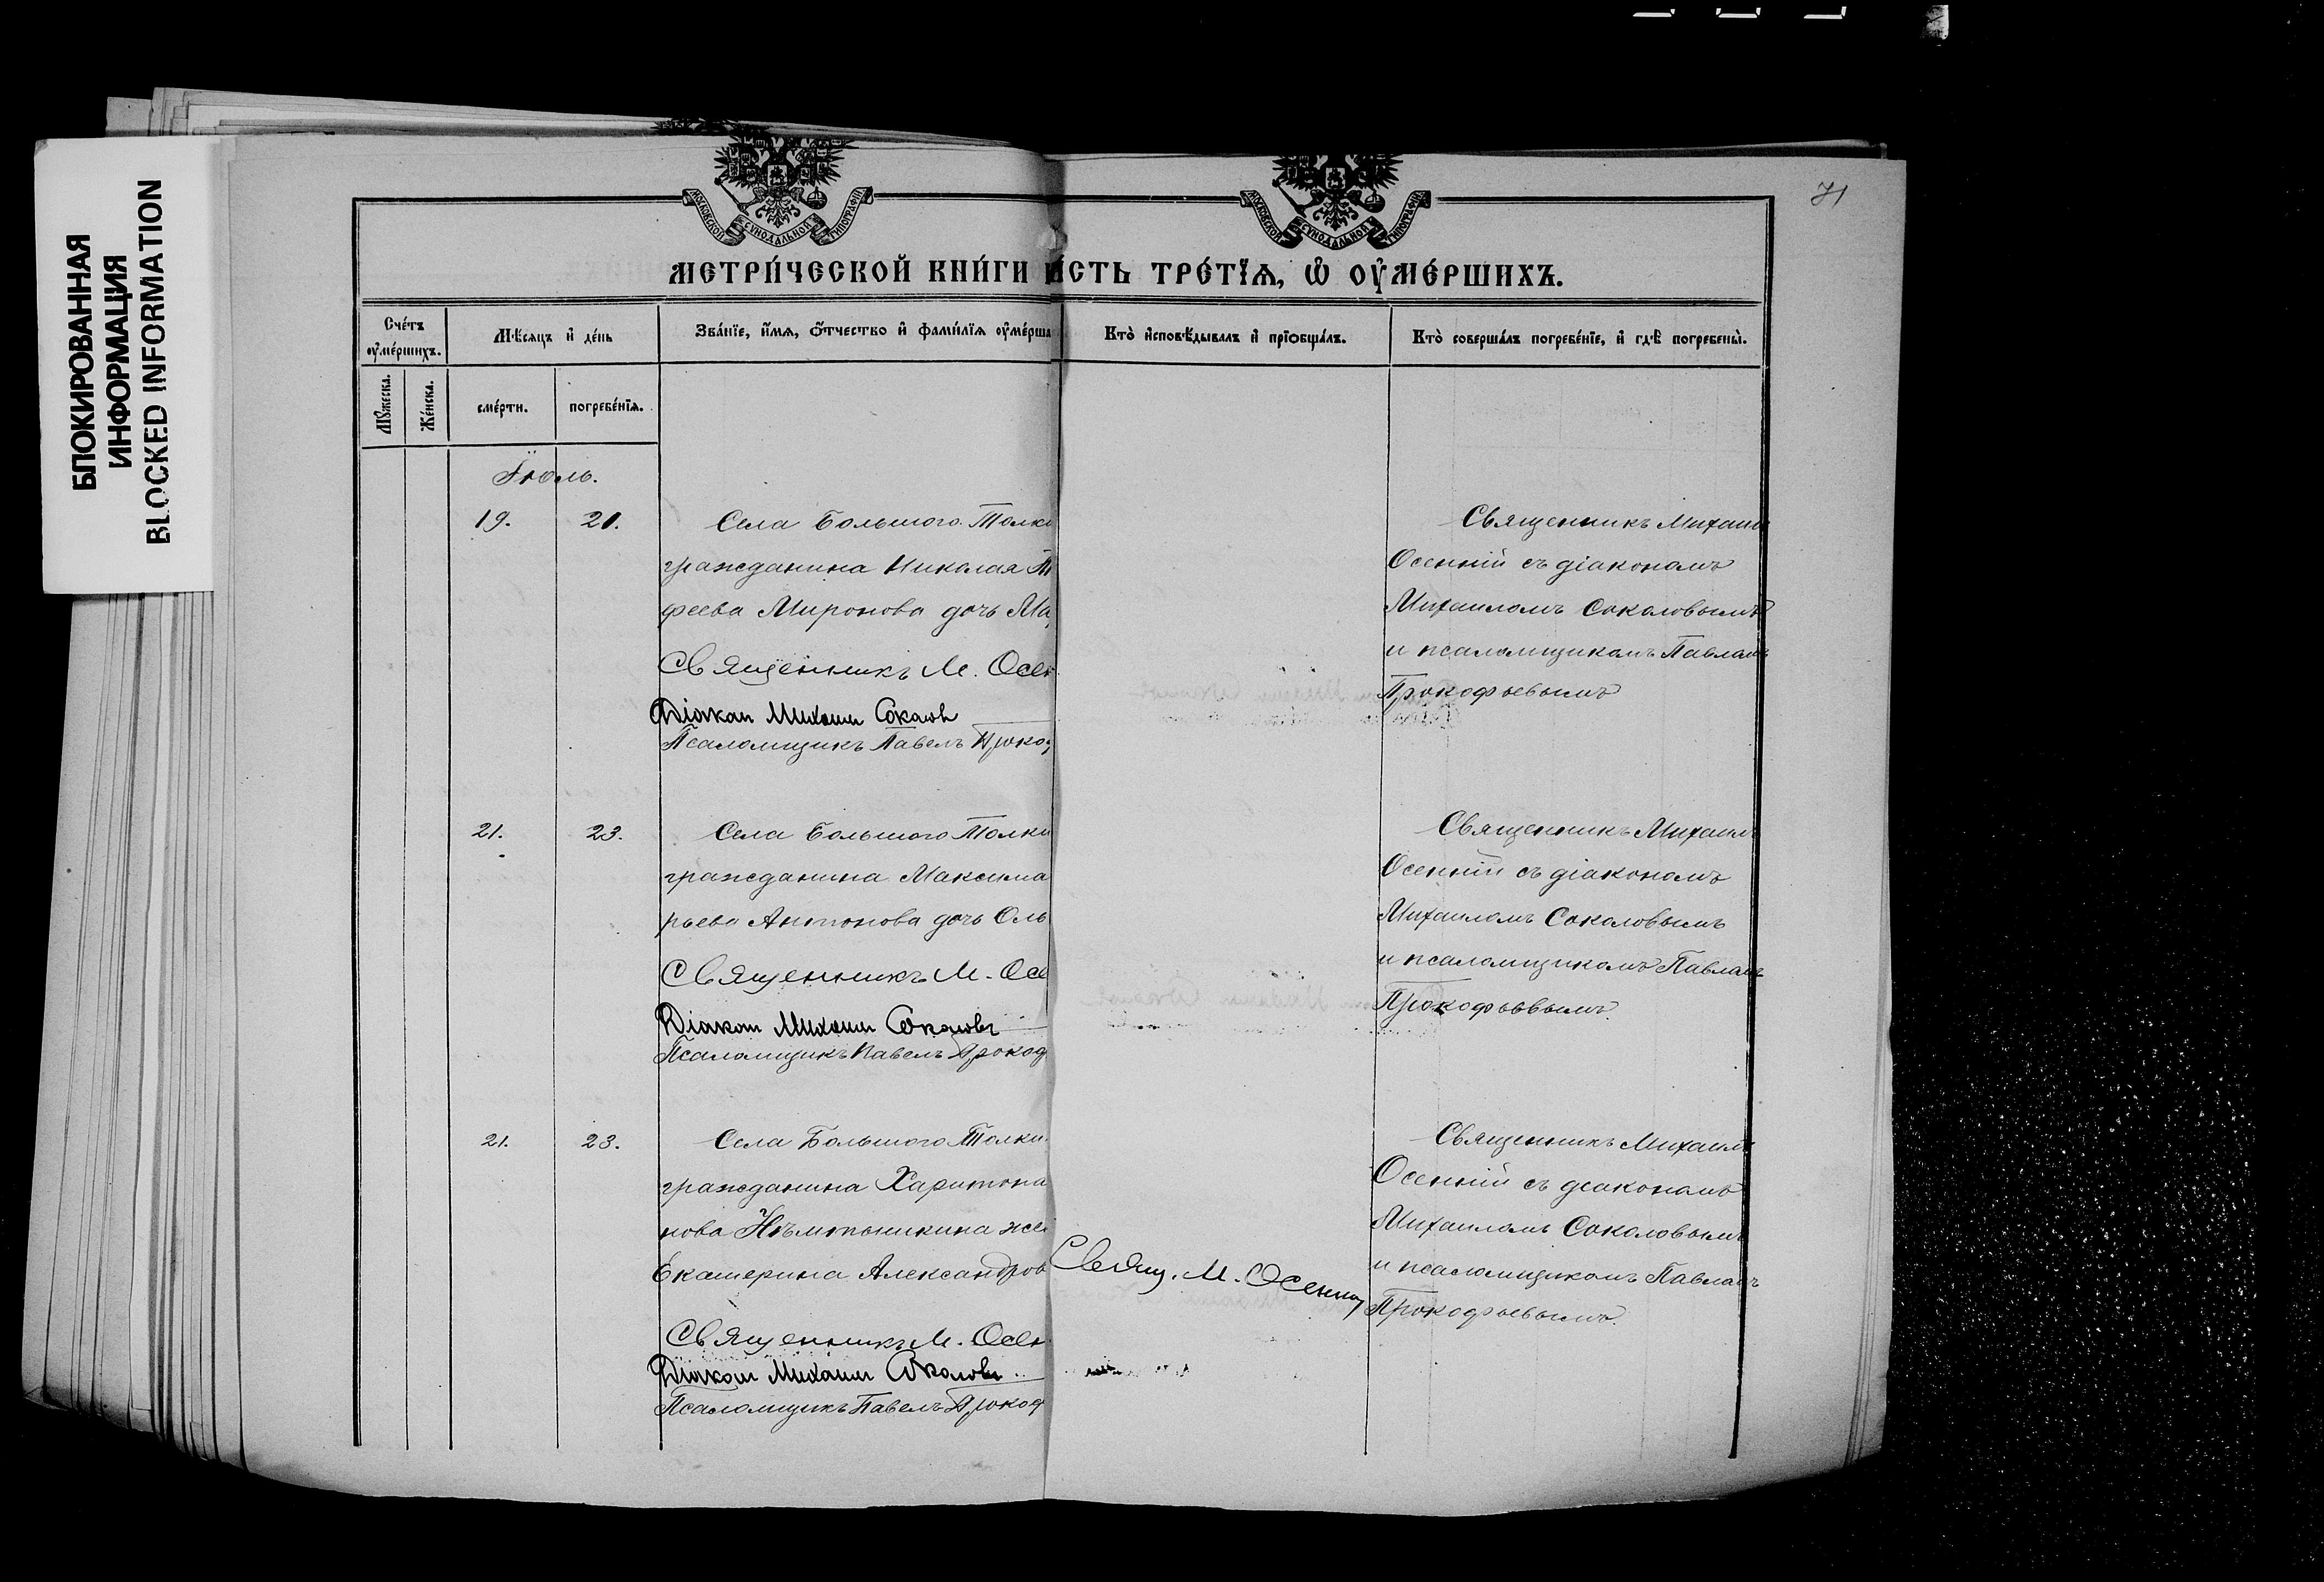 БЛОКИРОВАННАЯ
ИНФОРМАЦИЯ
BLOCKED INFORMATION
71
МОСКОВСКОЙ СѴНОДАЛЬНОЙ ТИПОГРАФІИ
МОСКОВСКОЙ СѴНОДАЛЬНОЙ ТИПОГРАФІИ
МЕТРИ́ЧЕСКОЙ КНИ́ГИ ... СТЬ ТРЕ́ТЇѦ, Ѡ҆ ОУ҆МЕ́РШИХЪ.
Сче́тъ оу҆ме́ршихъ.
Мѣ́сяцъ и҆ де́нь
Зва́нїе, и҆́мѧ, ѻ҆́тчество и҆ фами́лїѧ оу҆ме́рша
Кто̀ и҆сповѣ́дывалъ и҆ прїѡбща́лъ.
Кто̀ соверша́лъ погребе́нїе, и҆ гдѣ̀ погребены̀.
Мꙋ́жеска.
Же́нска.
сме́рти.
погребе́нїѧ.
Іюль.
19.
21.
Села Большого Толки
гражданина Николая Т
феева Миронова дочь Ма
Священникъ М. Осен
Діакон Михаил Соколов
Псаломщикъ Павелъ Прокоф
Священникъ Михаил
Осенній съ діакономъ
Михаиломъ Соколовымъ
и псаломщикомъ Павломъ
Прокофьевымъ
21.
23.
Села Большого Толки
гражданина Максима
рьева Антонова дочь Оль
Священникъ М. Осе
Діакон Михаил Соколовъ
Псаломщикъ Павелъ Прокоф
Священникъ Михаил
Осенній съ діакономъ
Михаиломъ Соколовымъ
и псаломщикомъ Павломъ
Прокофьевымъ.
21.
23.
Села Большого Толки
гражданина Харитона
нова жен
Екатерина Александров
Священникъ М. Осен
Діакон Михаил Соколовъ
Псаломщикъ Павелъ Прокоф
Свящ. М. Осенній
Священникъ Михаил
Осенній съ діакономъ
Михаиломъ Соколовымъ
и псаломщикомъ Павломъ
Прокофьевымъ.